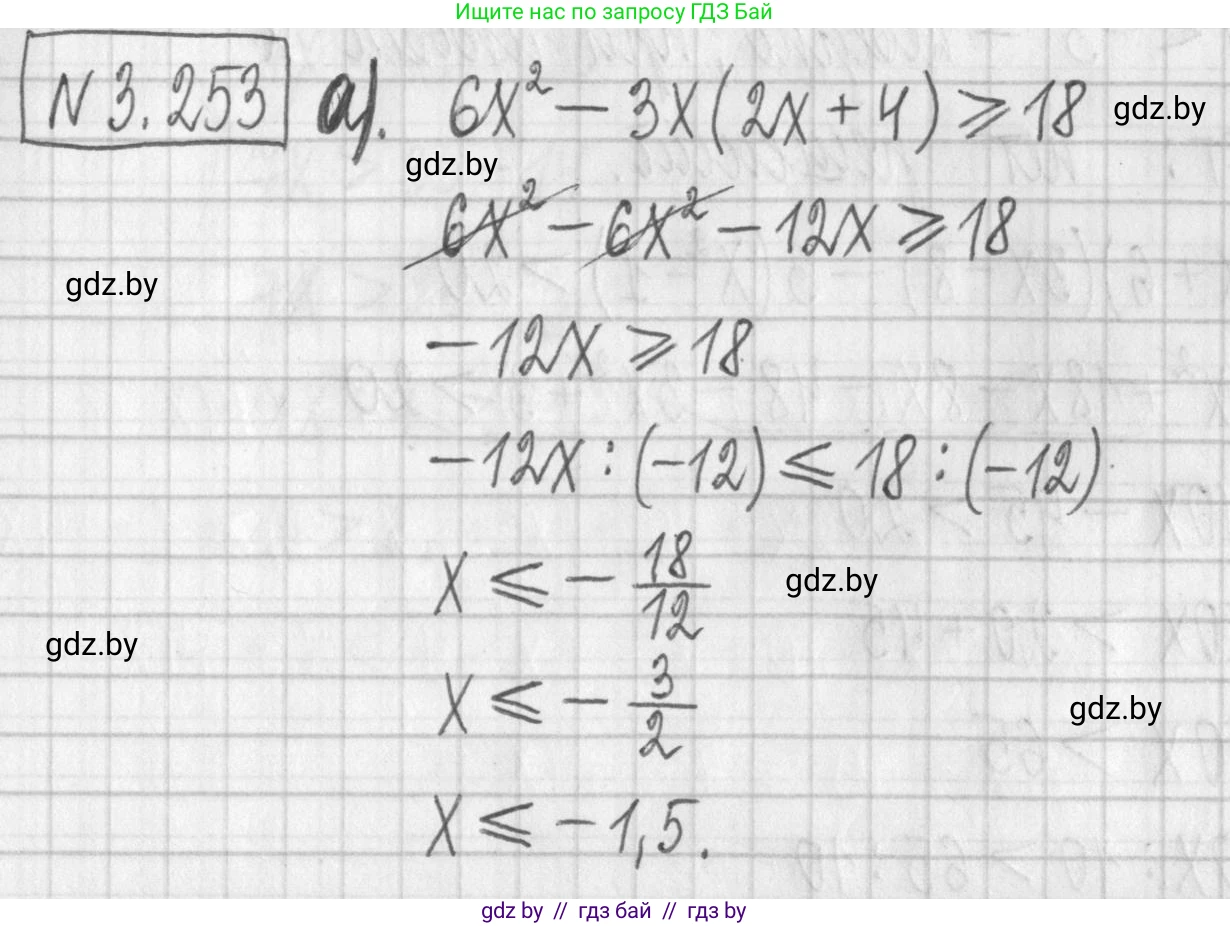 Ищите нас по запросу ГДЗ Бай
N 3.253 а). 6x² − 3x(2x + 4) ⩾ 18 gdz.by
gdz.by
6x² − 6x² − 12x ⩾ 18
gdz.by
−12x ⩾ 18
−12x : (−12) ⩽ 18 : (−12)
x ⩽ − 18/12 gdz.by
gdz.by
x ⩽ − 3/2 gdz.by
x ⩽ −1,5.
gdz by // гдз бай // гдз by